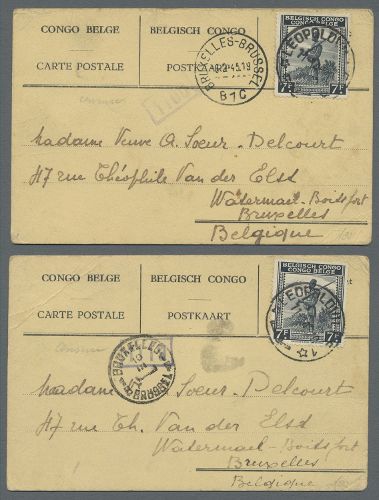 CONGO BELGE
BELGISCH CONGO
CARTE POSTALE
POSTKAART
BRUXELLES-BRUSSEL
B1C
LEOPOLDVILLE
7F 7F
Madame Veuve A. Soeur-Delcourt
47 rue Théophile Van der Elst
Watermael-Boitsfort
Bruxelles
Belgique
CONGO BELGE
BELGISCH CONGO
CARTE POSTALE
POSTKAART
BELGISCH CONGO
CONGO BELGE
LEOPOLDVILLE
7F 7F
BRUXELLES
BRUSSEL
Madame A. Soeur-Delcourt
47 rue Th. Van der Elst
Watermael-Boitsfort
Bruxelles
Belgique